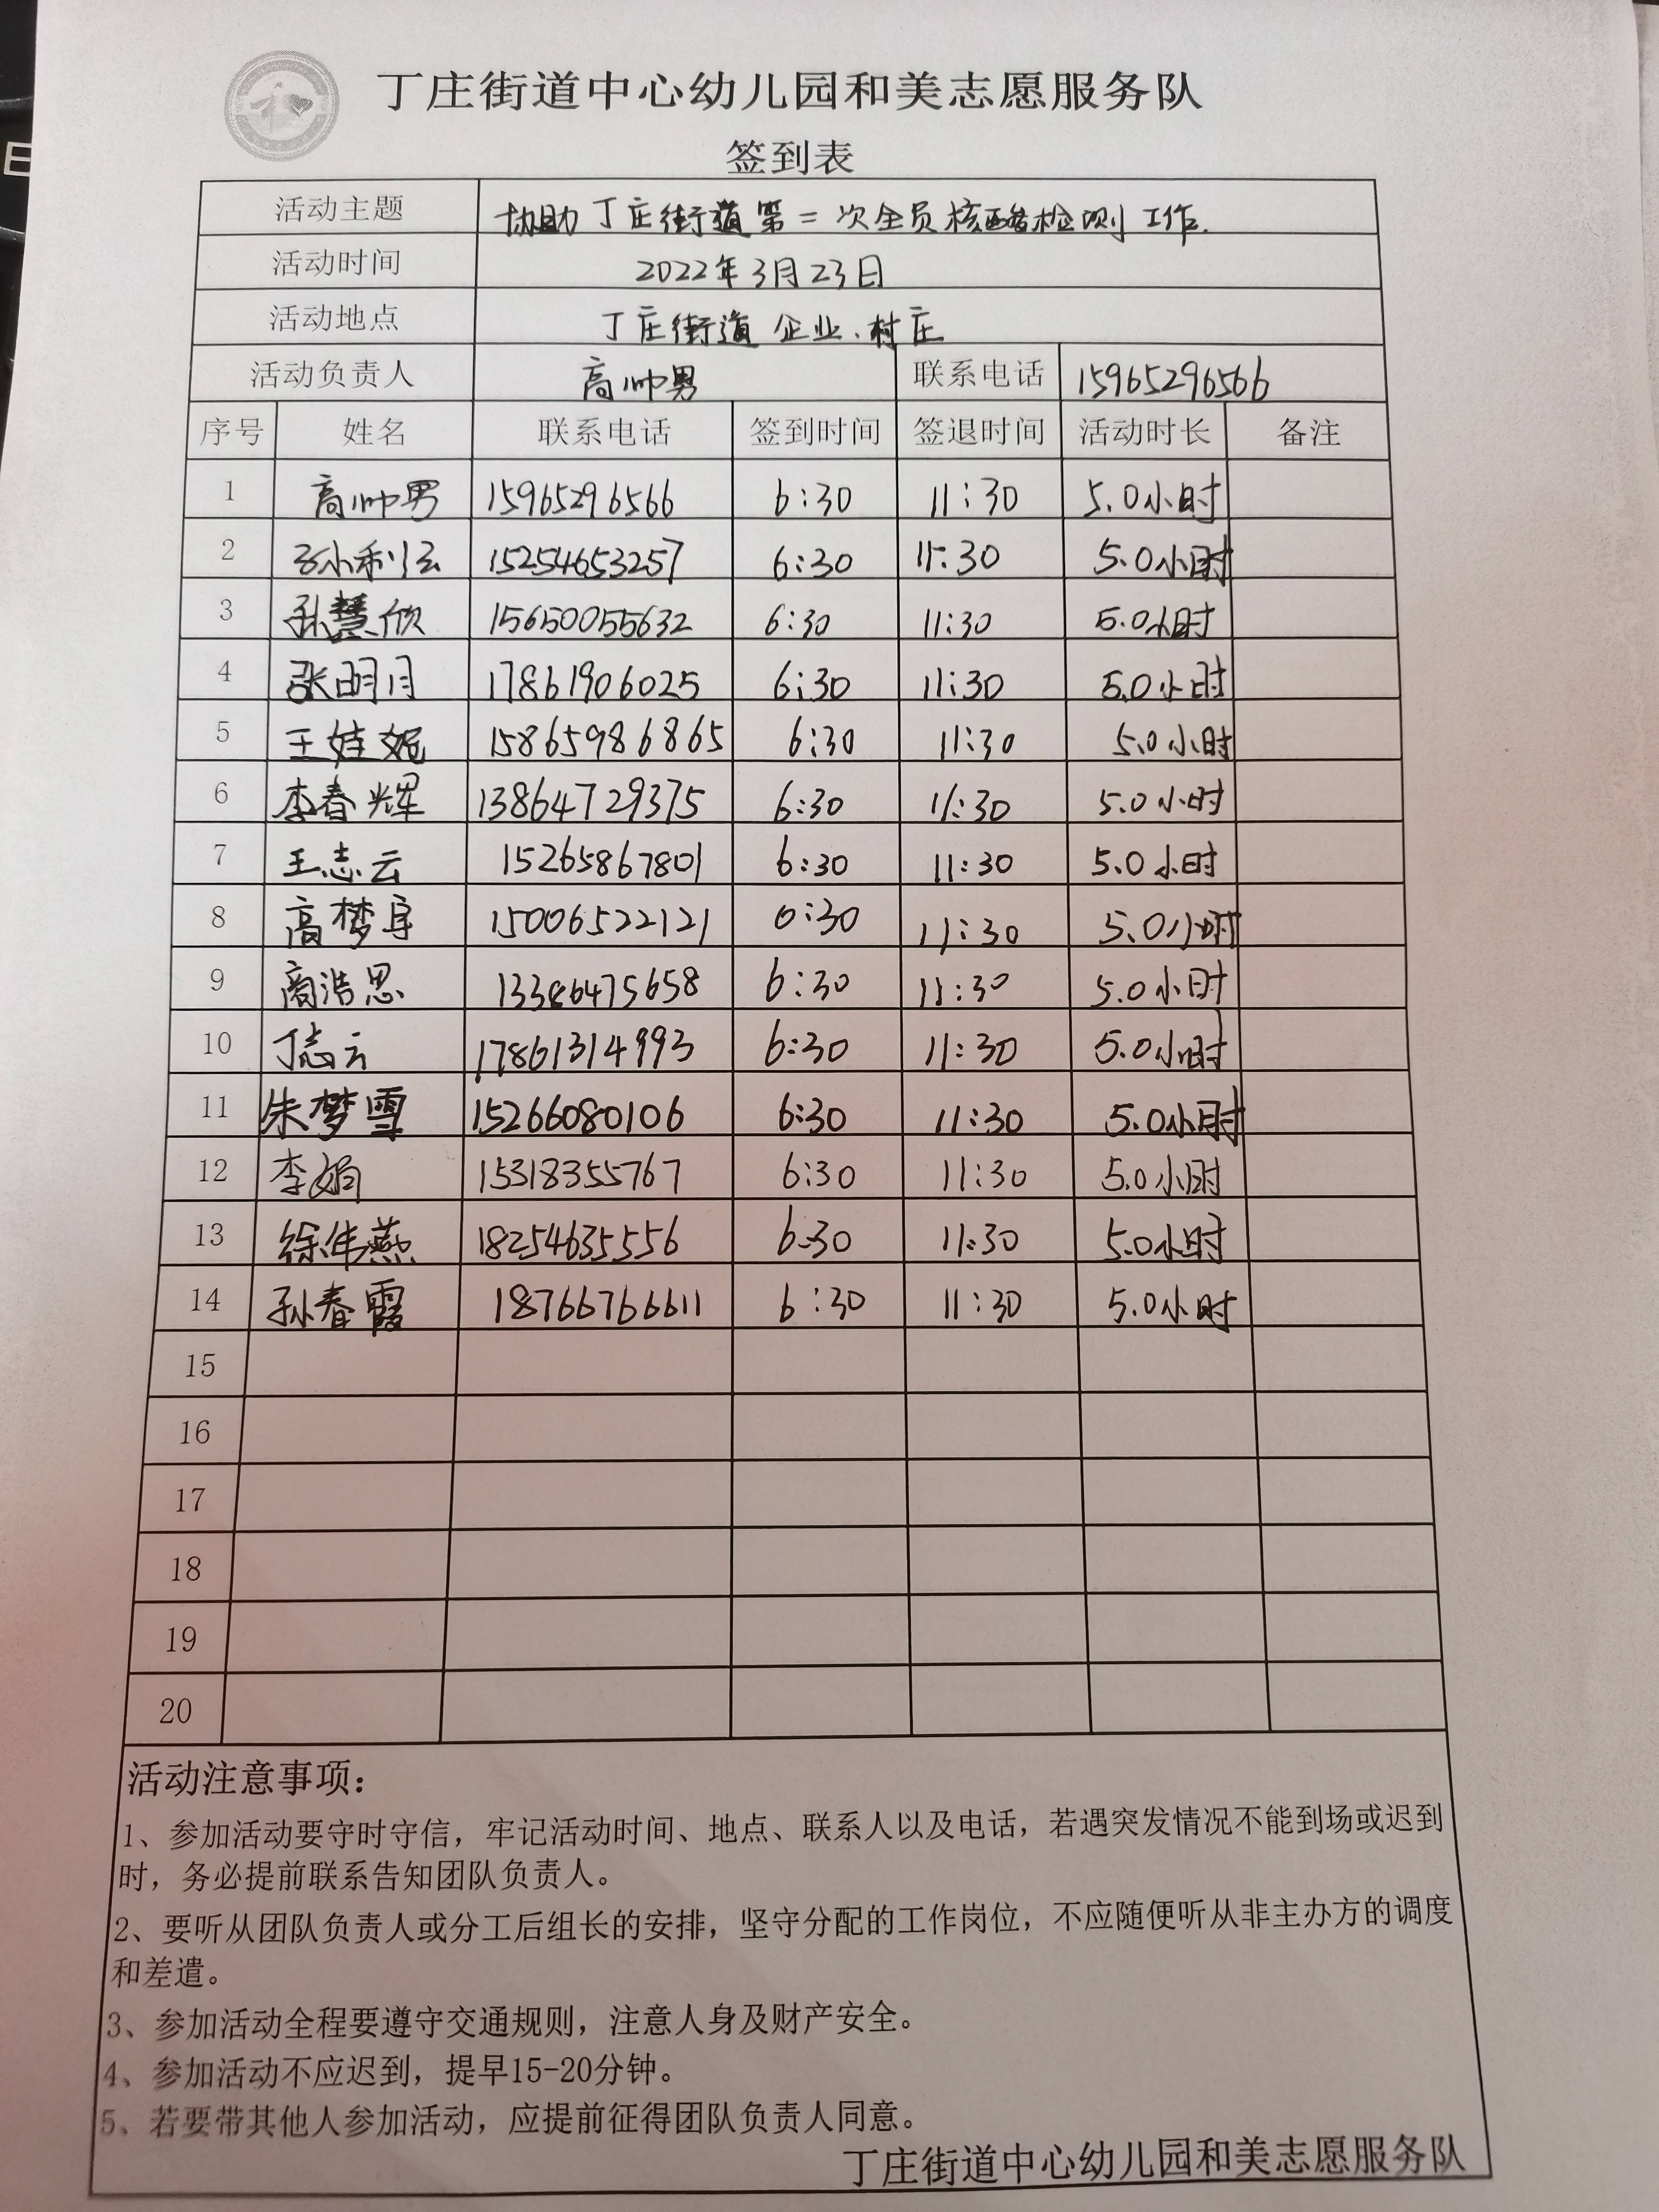 丁庄街道中心幼儿园和美志愿服务队
签到表
活动主题 协助丁庄街道第二次全员核酸检测工作.
活动时间 2022年3月23日
活动地点 丁庄街道企业、村庄
活动负责人 高帅男 联系电话 15965296566
序号 姓名 联系电话 签到时间 签退时间 活动时长 备注
1 高帅男 15965296566 6:30 11:30 5.0小时
2 15254653257 6:30 11:30 5.0小时
3 孙慧欣 15650055632 6:30 11:30 5.0小时
4 张明月 17861906025 6:30 11:30 5.0小时
5 王娃妮 15865986865 6:30 11:30 5.0小时
6 李春辉 13864729375 6:30 11:30 5.0小时
7 王志云 15265867801 6:30 11:30 5.0小时
8 高梦宇 15006522121 6:30 11:30 5.0小时
9 商浩思 6:30 11:30 5.0小时
10 丁志云 17861314993 6:30 11:30 5.0小时
11 朱梦雪 15266080106 6:30 11:30 5.0小时
12 李娟 15318355767 6:30 11:30 5.0小时
13 徐伟燕 18254635556 6:30 11:30 5.0小时
14 孙春霞 18766766611 6:30 11:30 5.0小时
15
16
17
18
19
20
活动注意事项：
1、参加活动要守时守信，牢记活动时间、地点、联系人以及电话，若遇突发情况不能到场或迟到
时，务必提前联系告知团队负责人。
2、要听从团队负责人或分工后组长的安排，坚守分配的工作岗位，不应随便听从非主办方的调度
和差遣。
3、参加活动全程要遵守交通规则，注意人身及财产安全。
4、参加活动不应迟到，提早15-20分钟。
5、若要带其他人参加活动，应提前征得团队负责人同意。
丁庄街道中心幼儿园和美志愿服务队